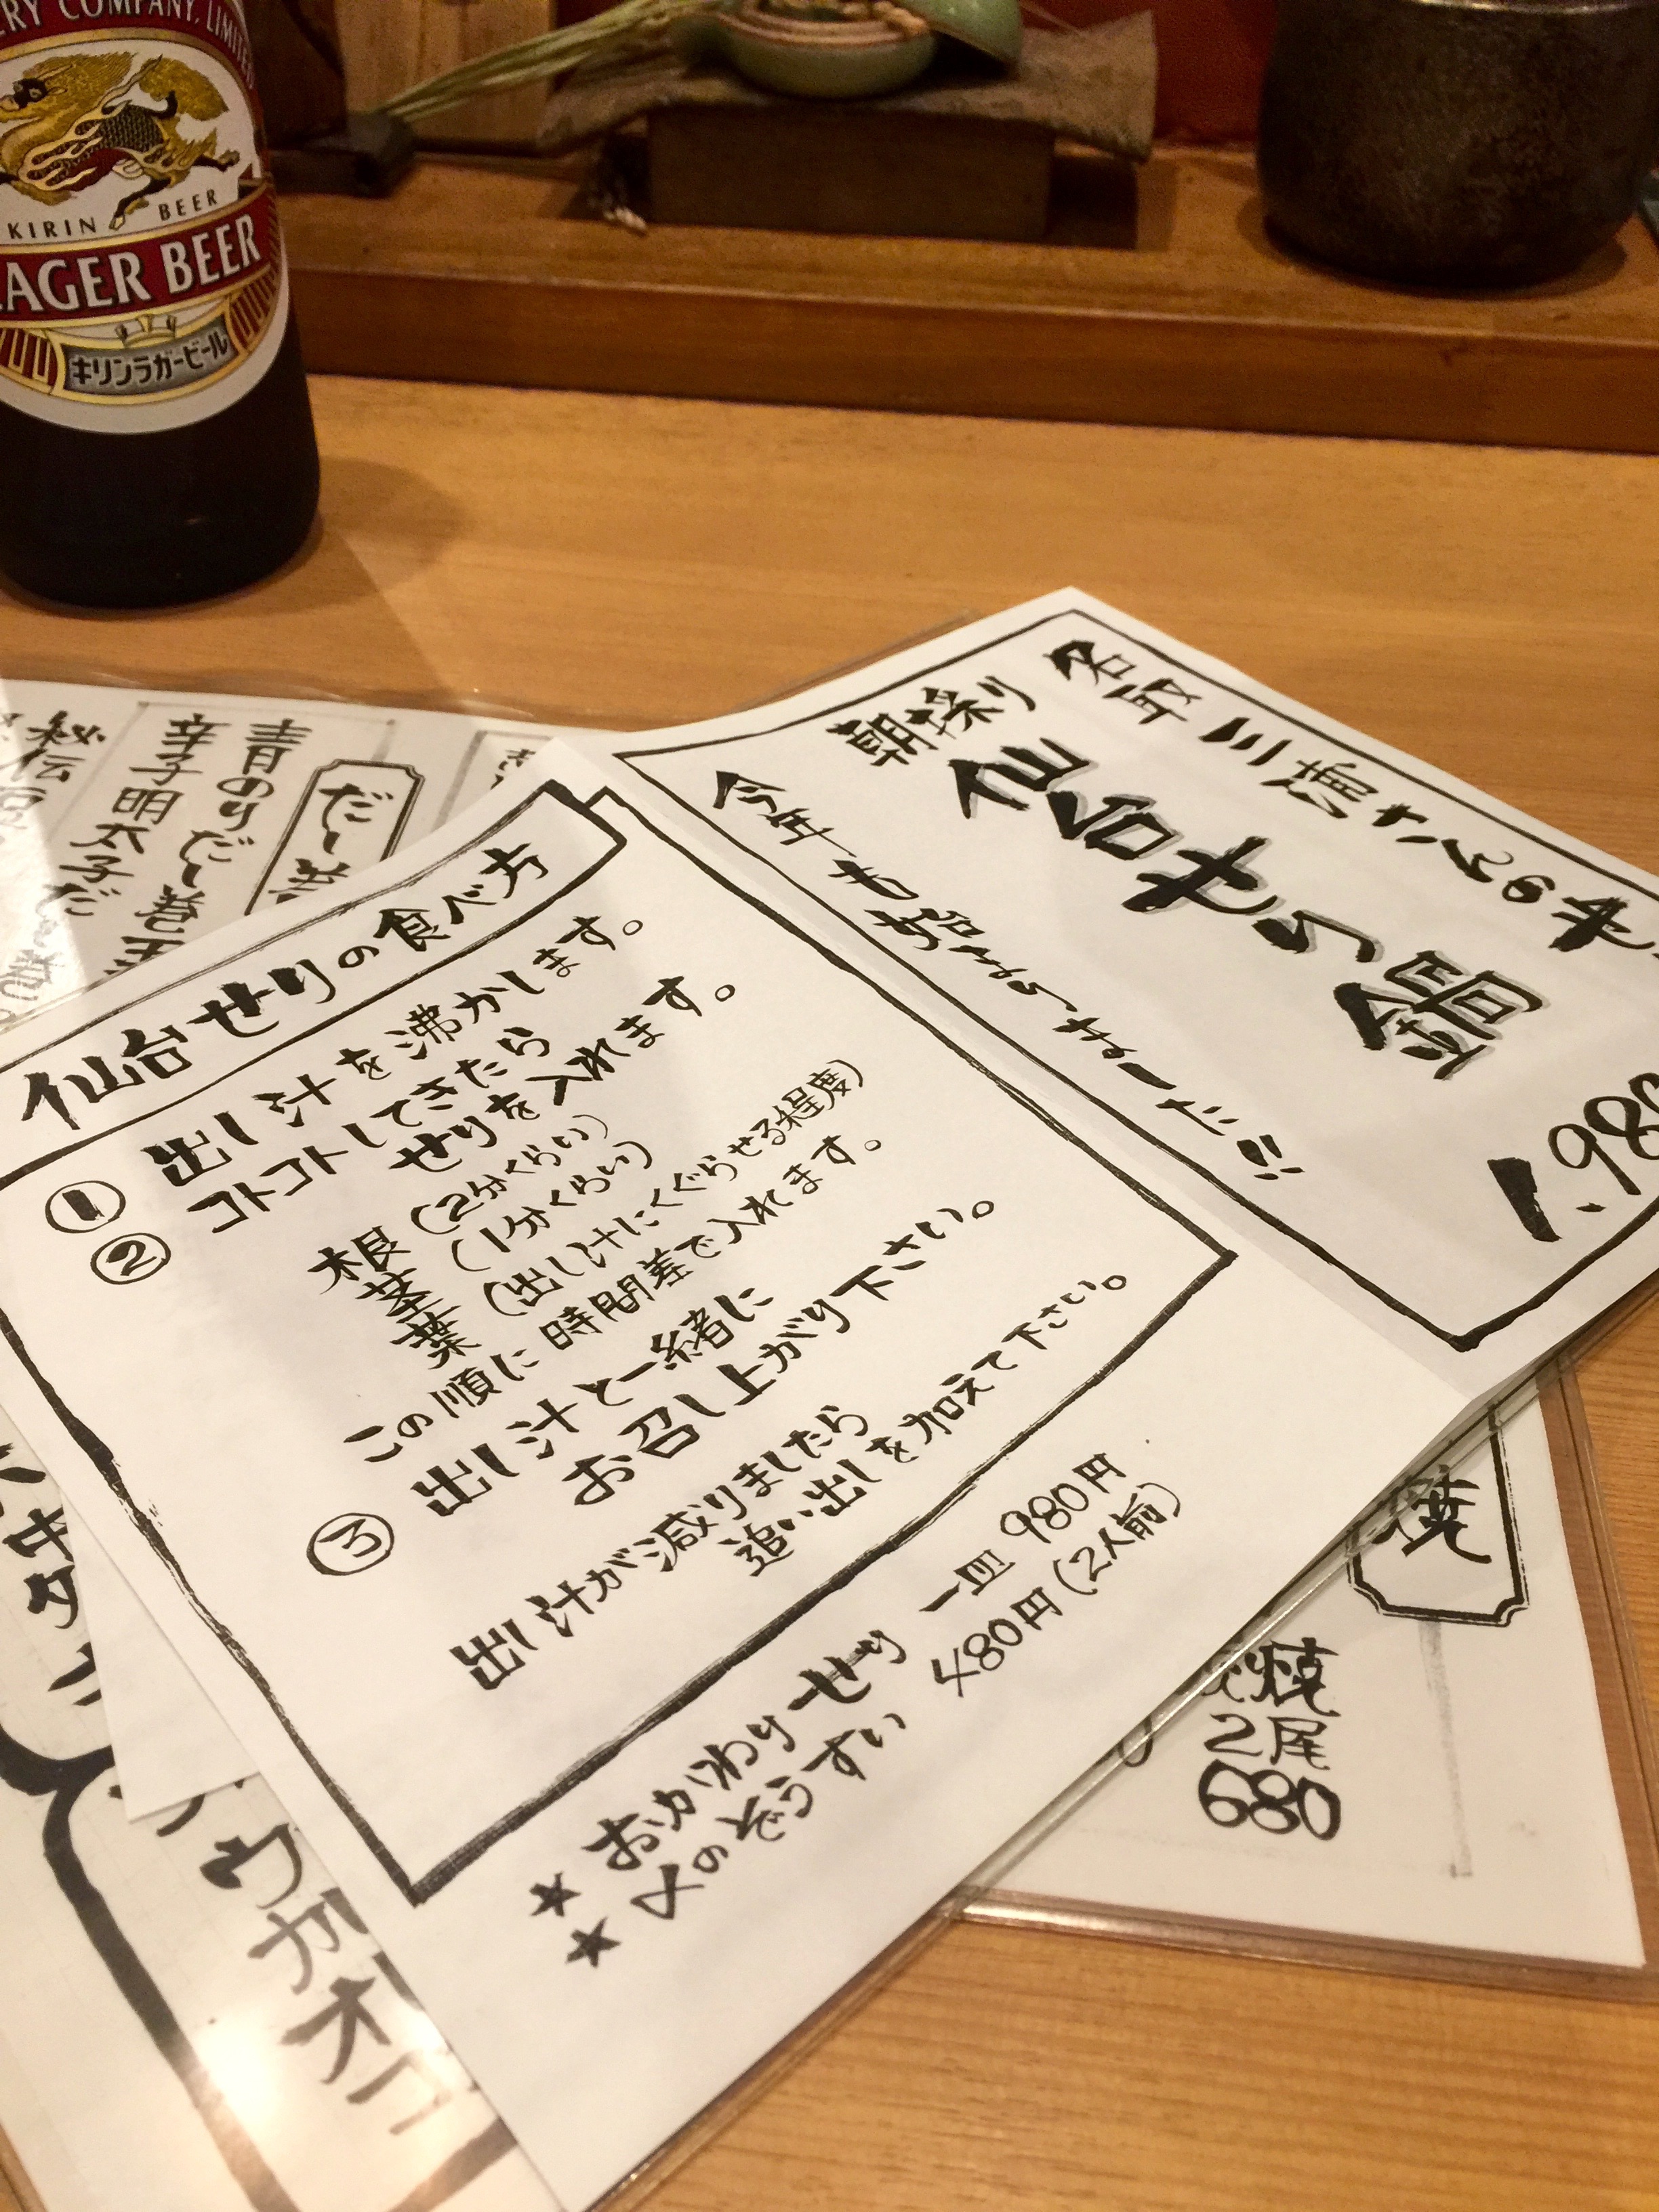 COMPANY, LIMITED
KIRIN BEER
LAGER BEER
キリンラガービール
名取 三浦さんのせ
朝採り
仙台せり鍋
今年も始まりましたー!!
1.980
仙台せりの食べ方
① 出し汁を沸かします。
② コトコトしてきたら
せりを入れます。
根 (2分くらい)
茎 (1分くらい)
葉 (出し汁にくぐらせる程度)
この順に時間差で入れます。
③ 出し汁と一緒に
お召し上がり下さい。
出し汁が減りましたら
追い出しを加えて下さい。
★ おかわりせり 一皿 980円
★ 〆のぞうすい 480円(2人前)
だし巻
青のりだし巻玉
辛子明太子だ
秘伝
焼
2尾
680